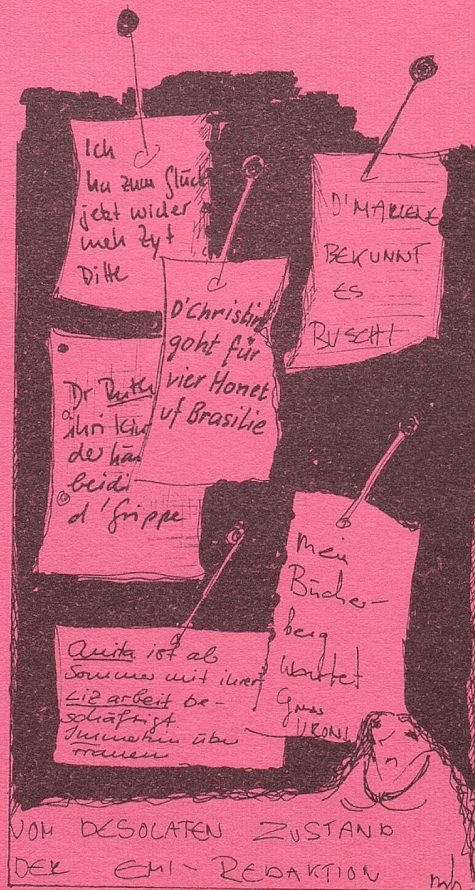 Ich
ha zum Glück
jetzt wider
meh Zyt
Ditte
D'MARLENE
BEKUNNT
ES
BUSCHI
D'Christine
goht für
vier Monet
uf Brasilie
Dr Ruth
ihri Kin
der hän
beidi
d'Grippe
Mein
Bücher-
berg
wartet
Gruss
VRONI
Anita ist ab
Sommer mit ihrer
Liz arbeit be-
schäftigt
Immerhin über
Frauen
VOM DESOLATEN ZUSTAND
DER EMI-REDAKTION